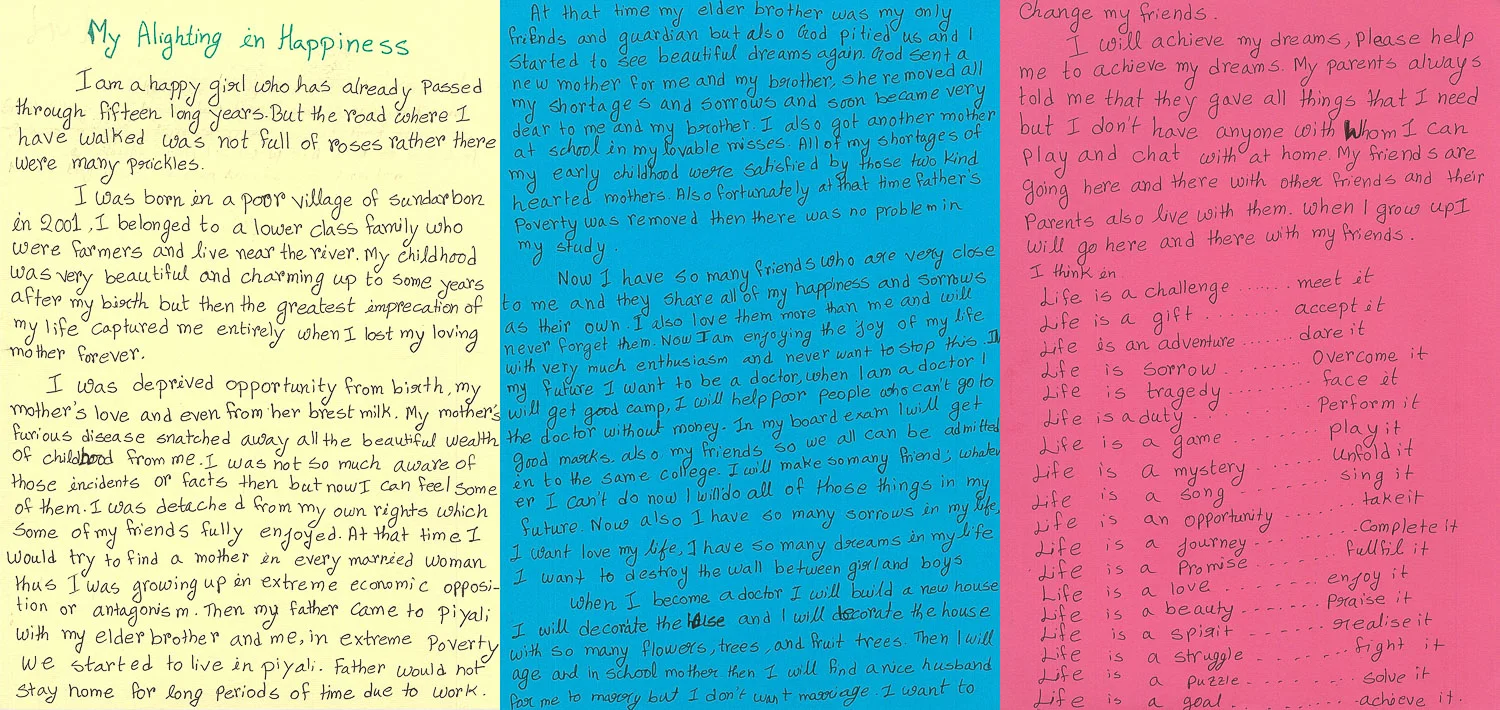 My Alighting in Happiness
I am a happy girl who has already passed
through fifteen long years. But the road where I
have walked was not full of roses rather there
were many prickles.
I was born in a poor village of sundarbon
in 2001, I belonged to a lower class family who
were farmers and live near the river. My childhood
was very beautiful and charming up to some years
after my birth but then the greatest imprecation of
my life captured me entirely when I lost my loving
mother forever.
I was deprived opportunity from birth, my
mother's love and even from her brest milk. My mother's
furious disease snatched away all the beautiful wealth
of childhood from me. I was not so much aware of
those incidents or facts then but now I can feel some
of them. I was detached from my own rights which
some of my friends fully enjoyed. At that time I
would try to find a mother in every married woman
thus I was growing up in extreme economic opposi-
tion or antagonism. Then my father came to Piyali
with my elder brother and me, in extreme Poverty
we started to live in piyali. Father would not
stay home for long periods of time due to work.
At that time my elder brother was my only
friends and guardian but also God pitied us and I
started to see beautiful dreams again. God sent a
new mother for me and my brother, she removed all
my shortages and sorrows and soon became very
dear to me and my brother. I also got another mother
at school in my lovable misses. All of my shortages of
my early childhood were satisfied by those two kind
hearted mothers. Also fortunately at that time father's
Poverty was removed then there was no problem in
my study.
Now I have so many friends who are very close
to me and they share all of my happiness and sorrows
as their own. I also love them more than me and will
never forget them. Now I am enjoying the joy of my life
with very much enthusiasm and never want to stop this. In
my future I want to be a doctor, when I am a doctor I
will get good camp, I will help poor people who can't go to
the doctor without money. In my board exam I will get
good marks. also my friends so we all can be admitted
in to the same college. I will make so many friend; whatev
er I can't do now I will do all of those things in my
future. Now also I have so many sorrows in my life,
I want love my life, I have so many dreams in my life
I want to destroy the wall between girl and boys
When I become a doctor I will build a new house
I will decorate the house and I will decorate the house
with so many flowers, trees, and fruit trees. Then I will
age and in school mother then I will find a nice husband
for me to marry but I don't want marriage. I want to
Change my friends.
I will achieve my dreams, Please help
me to achieve my dreams. My parents always
told me that they gave all things that I need
but I don't have anyone with Whom I can
play and chat with at home. My friends are
going here and there with other friends and their
Parents also live with them. When I grow up I
will go here and there with my friends.
I think in
Life is a challenge ....... meet it
Life is a gift ........ accept it
Life is an adventure ...... dare it
Life is sorrow ........ Overcome it
Life is tragedy ........ face it
Life is a duty ........ Perform it
Life is a game ........ play it
Life is a mystery ....... unfold it
Life is a song ........ sing it
Life is an opportunity ....... take it
Life is a Journey ....... Complete it
Life is a Promise ....... fullfil it
Life is a love ........ enjoy it
Life is a beauty ........ Praise it
Life is a spirit ....... realise it
Life is a struggle ....... fight it
Life is a puzzle ........ solve it
Life is a goal ........ achieve it.